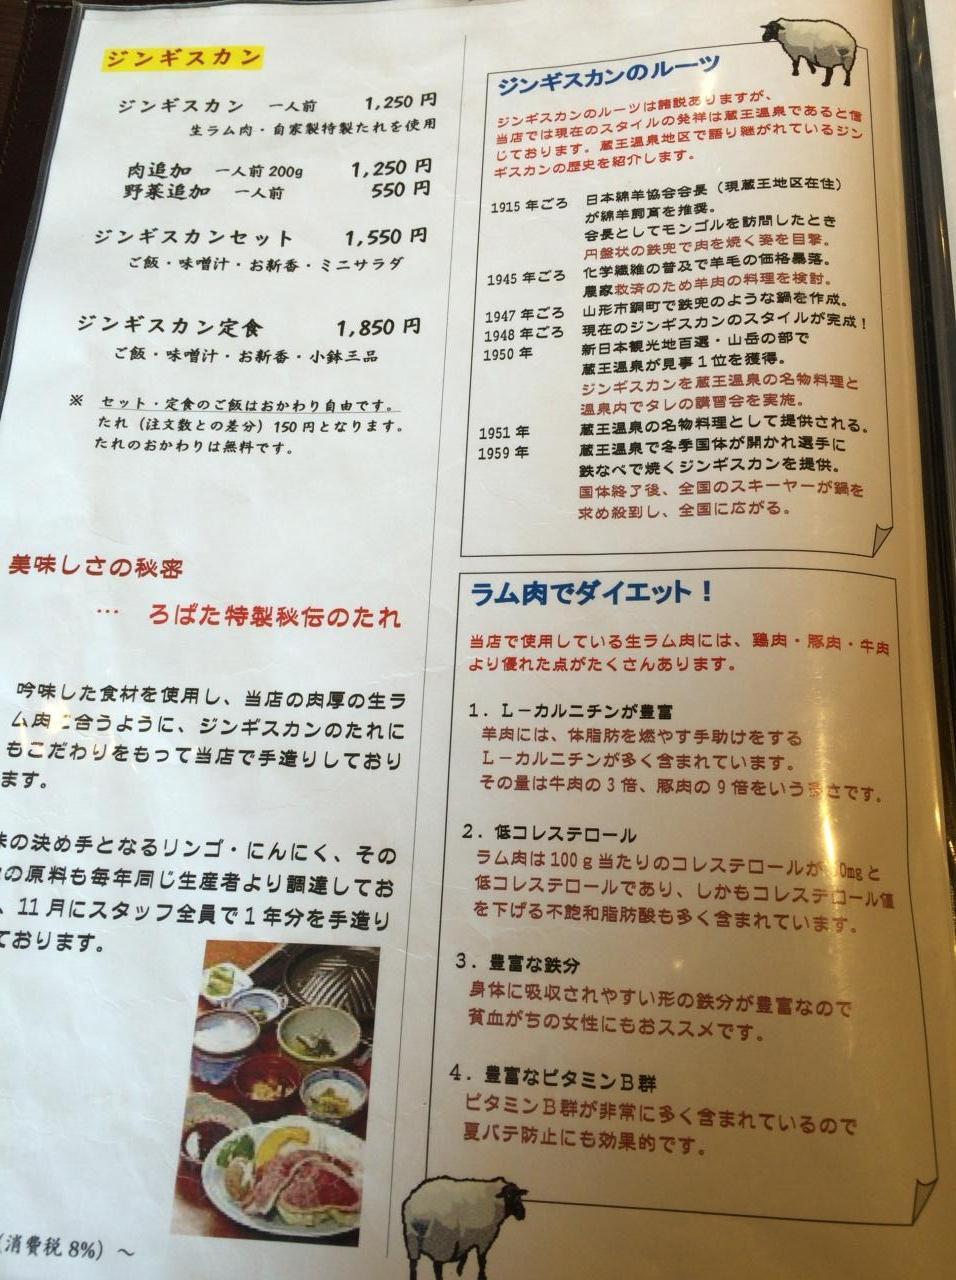 ジンギスカン
ジンギスカン 一人前 1,250 円
生ラム肉・自家製特製たれを使用
肉追加 一人前 200g 1,250 円
野菜追加 一人前 550 円
ジンギスカンセット 1,550 円
ご飯・味噌汁・お新香・ミニサラダ
ジンギスカン定食 1,850 円
ご飯・味噌汁・お新香・小鉢三品
※ セット・定食のご飯はおかわり自由です。
たれ（注文数との差分）150円となります。
たれのおかわりは無料です。
美味しさの秘密
… ろばた特製秘伝のたれ
吟味した食材を使用し、当店の肉厚の生ラ
ム肉に合うように、ジンギスカンのたれに
もこだわりをもって当店で手造りしており
ます。
味の決め手となるリンゴ・にんにく、その
の原料も毎年同じ生産者より調達してお
、11月にスタッフ全員で1年分を手造り
ております。
(消費税 8%) ～
ジンギスカンのルーツ
ジンギスカンのルーツは諸説ありますが、
当店では現在のスタイルの発祥は蔵王温泉であると信
じております。蔵王温泉地区で語り継がれているジン
ギスカンの歴史を紹介します。
1915 年ごろ 日本綿羊協会会長（現蔵王地区在住）
が綿羊飼育を推奨。
会長としてモンゴルを訪問したとき
円盤状の鉄兜で肉を焼く姿を目撃。
1945 年ごろ 化学繊維の普及で羊毛の価格暴落。
農家救済のため羊肉の料理を検討。
1947 年ごろ 山形市銅町で鉄兜のような鍋を作成。
1948 年ごろ 現在のジンギスカンのスタイルが完成！
1950 年 新日本観光地百選・山岳の部で
蔵王温泉が見事１位を獲得。
ジンギスカンを蔵王温泉の名物料理と
温泉内でタレの講習会を実施。
1951 年 蔵王温泉の名物料理として提供される。
1959 年 蔵王温泉で冬季国体が開かれ選手に
鉄なべで焼くジンギスカンを提供。
国体終了後、全国のスキーヤーが鍋を
求め殺到し、全国に広がる。
ラム肉でダイエット！
当店で使用している生ラム肉には、鶏肉・豚肉・牛肉
より優れた点がたくさんあります。
1．Ｌ－カルニチンが豊富
羊肉には、体脂肪を燃やす手助けをする
Ｌ－カルニチンが多く含まれています。
その量は牛肉の３倍、豚肉の９倍をいう多さです。
2．低コレステロール
ラム肉は100ｇ当たりのコレステロールが 0mgと
低コレステロールであり、しかもコレステロール値
を下げる不飽和脂肪酸も多く含まれています。
3．豊富な鉄分
身体に吸収されやすい形の鉄分が豊富なので
貧血がちの女性にもおススメです。
4．豊富なビタミンＢ群
ビタミンＢ群が非常に多く含まれているので
夏バテ防止にも効果的です。